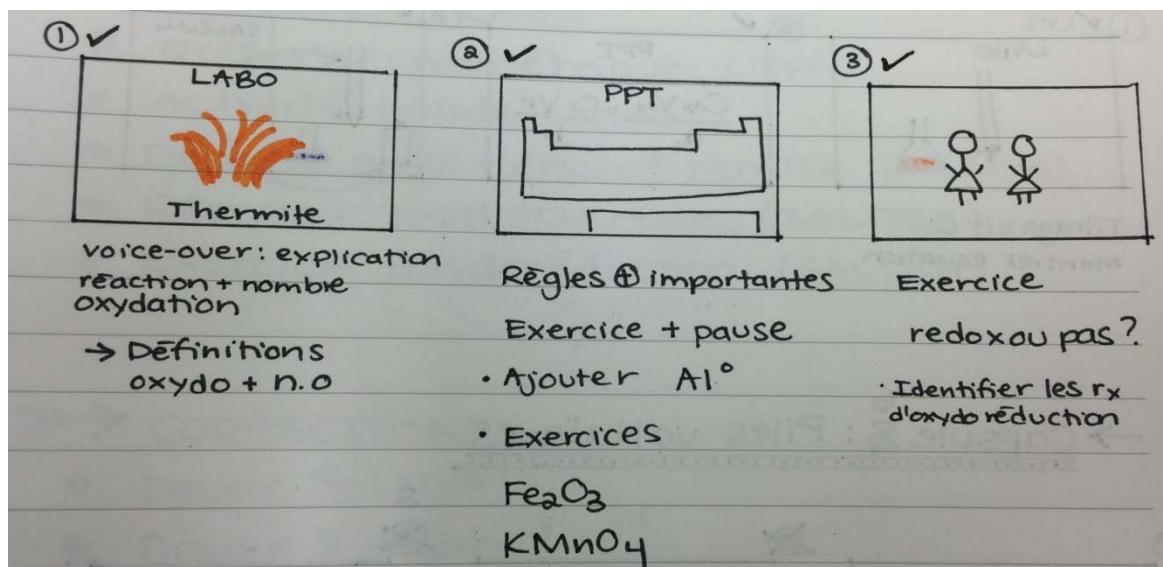 ① ✓
LABO
Thermite
voice-over: explication
réaction + nombre
oxydation
→ Définitions
oxydo + n.o
② ✓
PPT
Règles ⊕ importantes
Exercice + pause
• Ajouter Al°
• Exercices
Fe₂O₃
KMnO₄
③ ✓
Exercice
redox ou pas?
• Identifier les rx
d'oxydoréduction
→ Capsule 8: Piles